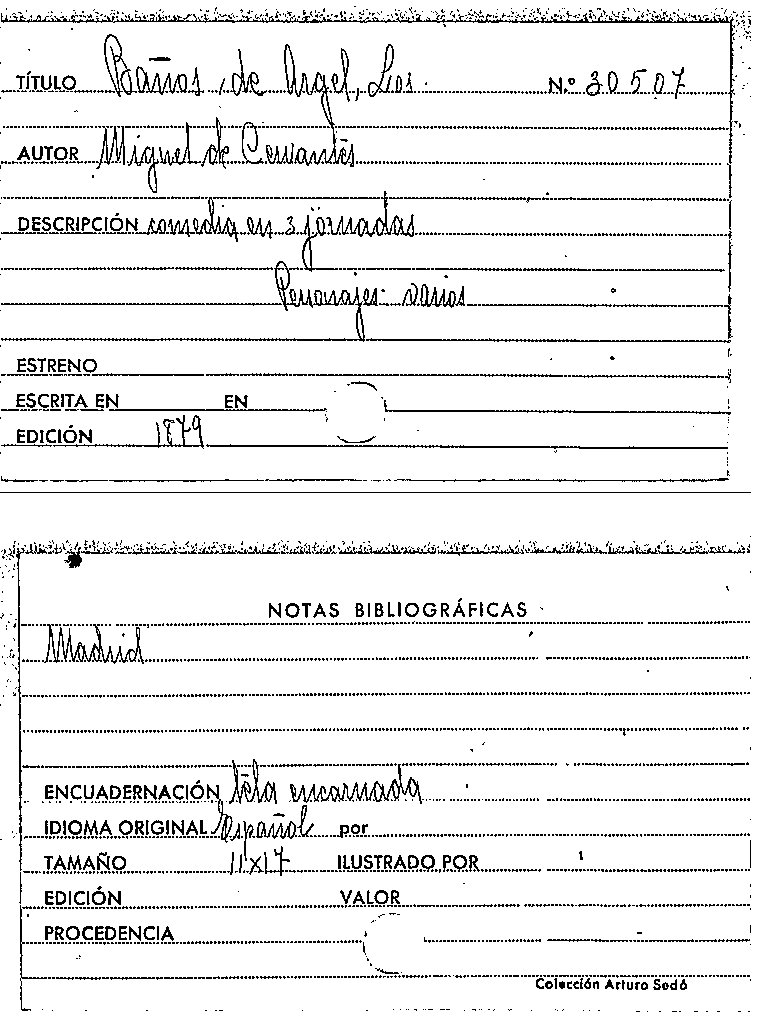 TÍTULO Baños, de Argel, Los. N.º 30507
AUTOR Miguel de Cervantes
DESCRIPCIÓN comedia en 3 jornadas
Personajes: varios
ESTRENO
ESCRITA EN EN
EDICIÓN 1879
NOTAS BIBLIOGRÁFICAS
Madrid
ENCUADERNACIÓN tela encarnada
IDIOMA ORIGINAL Español por
TAMAÑO 11x17 ILUSTRADO POR
EDICIÓN VALOR
PROCEDENCIA
Colección Arturo Sedó